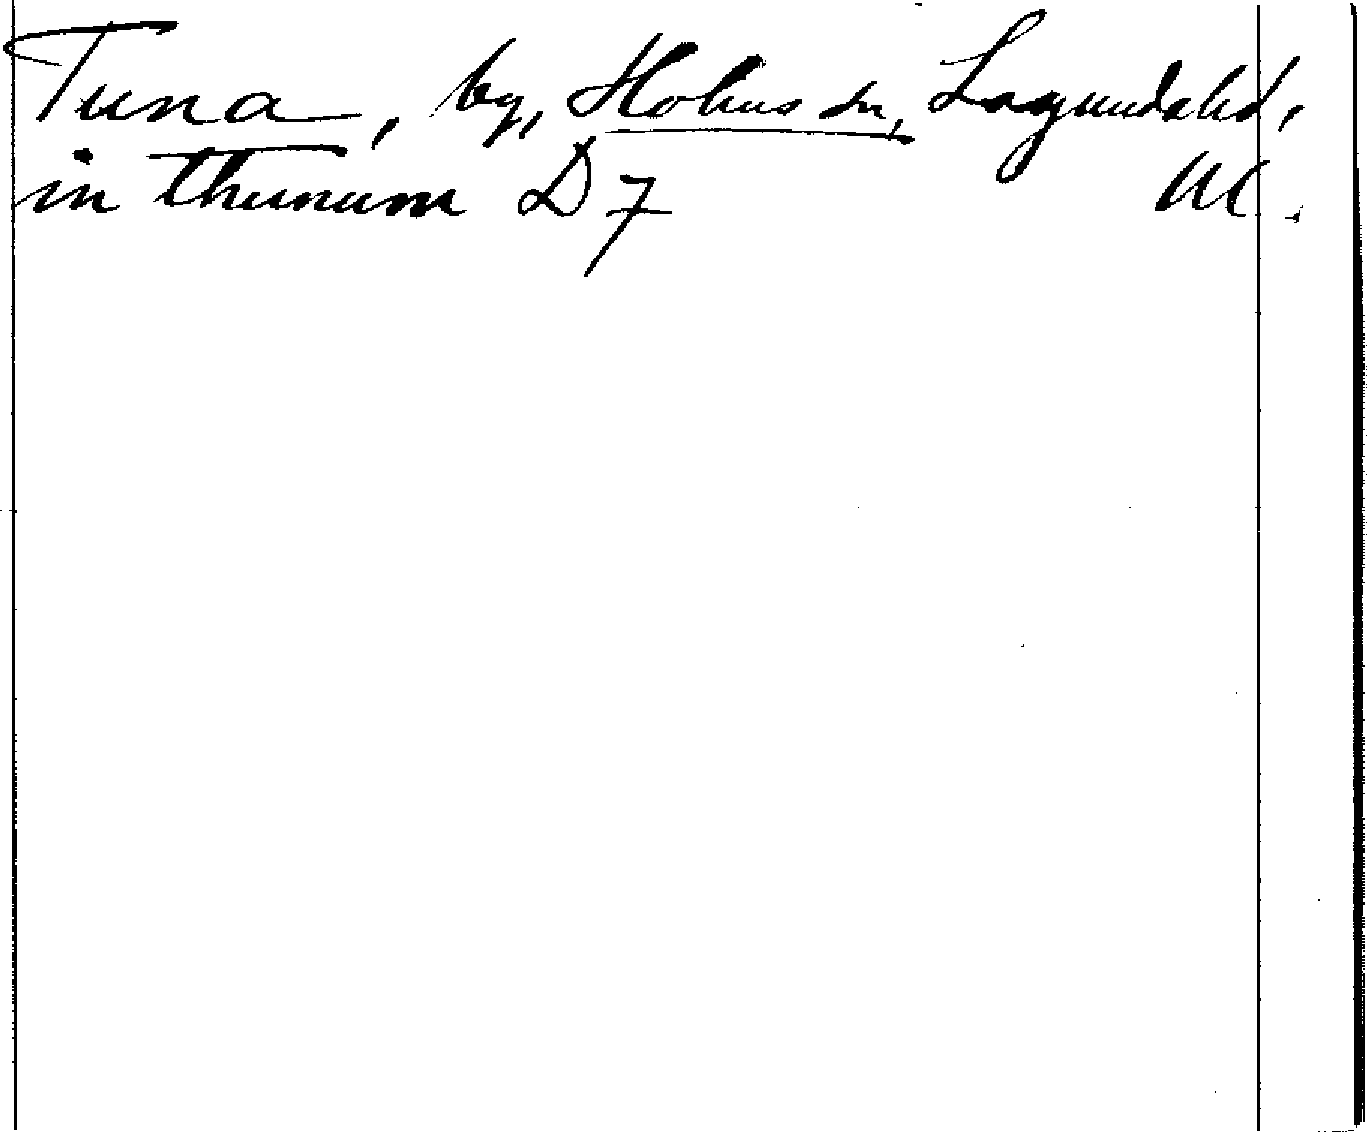 Tuna, by, Holms sn, Lagundahd,
in thunum D 7 U.